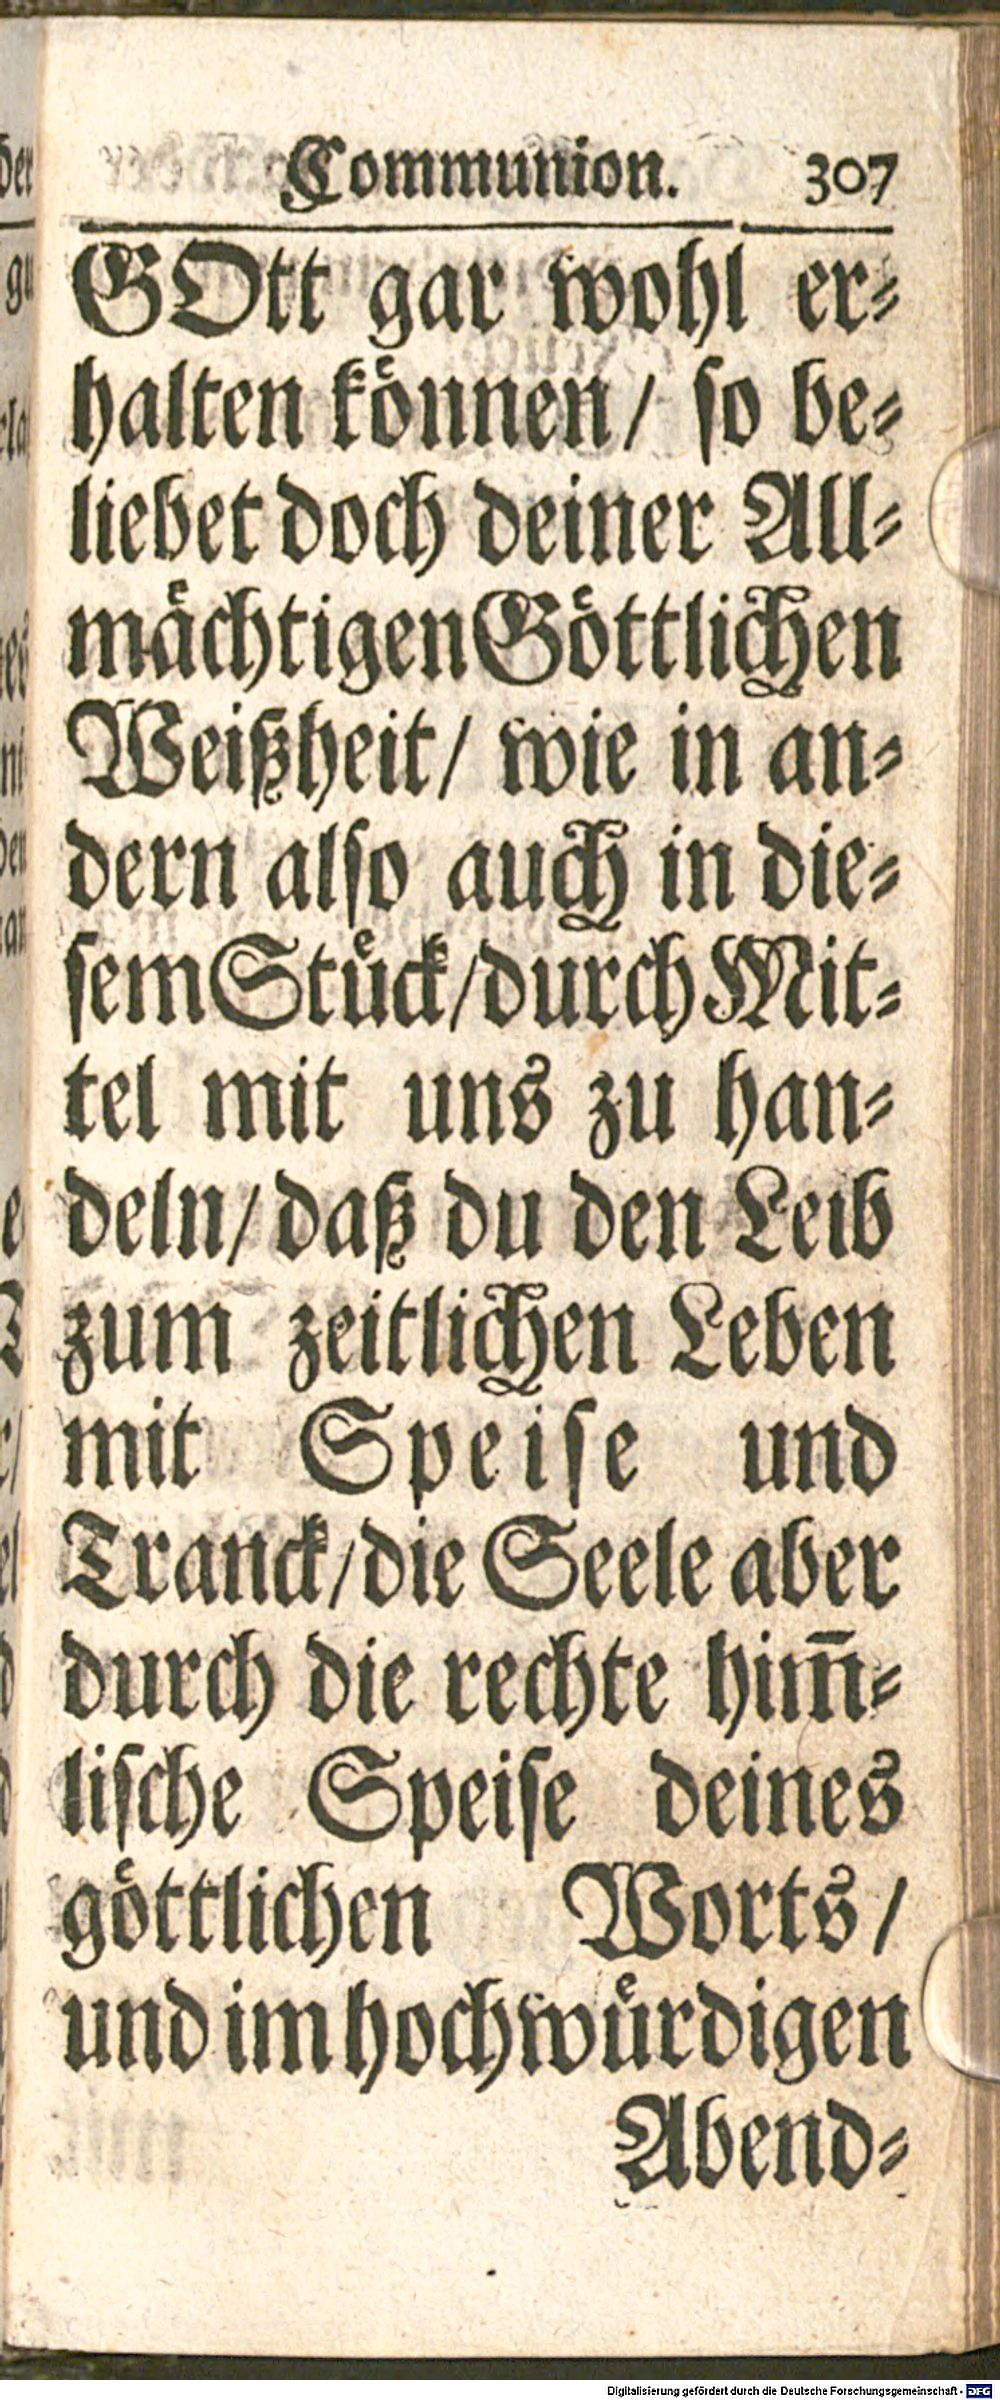 Communion. 307
GOtt gar wohl er⸗
halten koͤnnen/ ſo be⸗
liebet doch deiner All⸗
maͤchtigen Goͤttlichen
Weißheit/ wie in an⸗
dern alſo auch in die⸗
ſem Stuͤck/ durch Mit⸗
tel mit uns zu han⸗
deln/ daß du den Leib
zum zeitlichen Leben
mit Speiſe und
Tranck/ die Seele aber
durch die rechte him̃⸗
liſche Speiſe deines
goͤttlichen Worts/
und im hochwuͤrdigen
Abend⸗
Digitalisierung gefördert durch die Deutsche Forschungsgemeinschaft - DFG